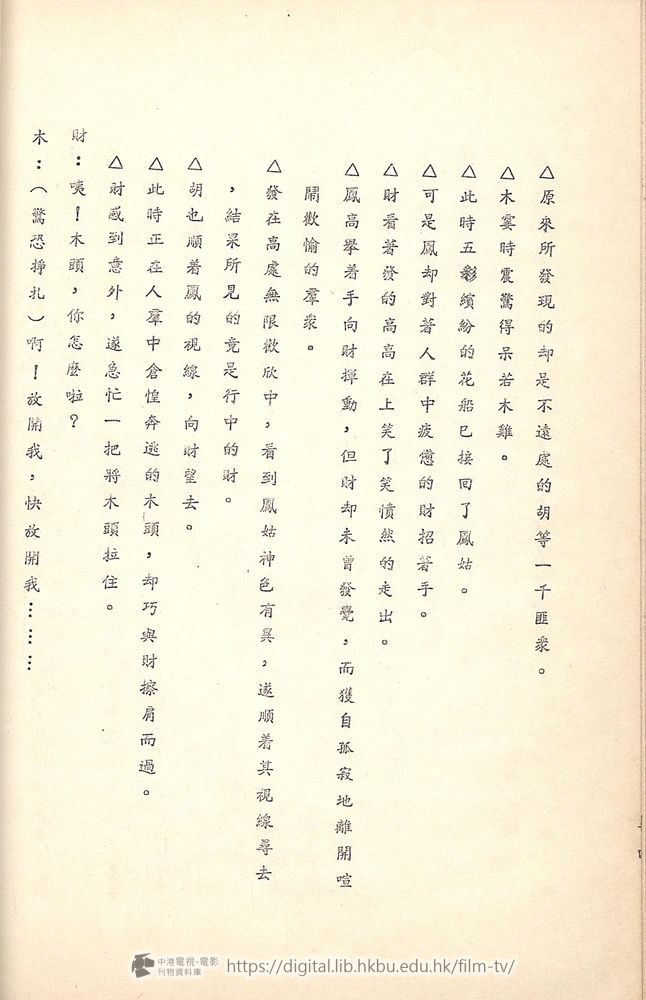 △原來所發現的却是不遠處的胡等一千匪衆。
△木霎時震驚得呆若木雞。
△此時五彩繽紛的花船已接回了鳳姑。
△可是鳳却對著人群中疲憊的財招著手。
△財看著發的高高在上笑了笑憤然的走出。
△鳳高擧着手向財揮動，但財却未曾發覺，而獲自孤寂地離開喧
鬧歡愉的羣衆。
△發在高處無限歡欣中，看到鳳姑神色有異，遂順着其視線尋去
，結果所見的竟是行中的財。
△胡也順着鳳的視線，向財望去。
△此時正在人羣中倉惶奔逃的木頭，却巧與財擦肩而過。
△財感到意外，遂急忙一把將木頭拉住。
財：咦！木頭，你怎麼啦？
木：（驚恐掙扎）啊！放開我，快放開我………
中港電視·電影
刊物資料庫
https://digital.lib.hkbu.edu.hk/film-tv/